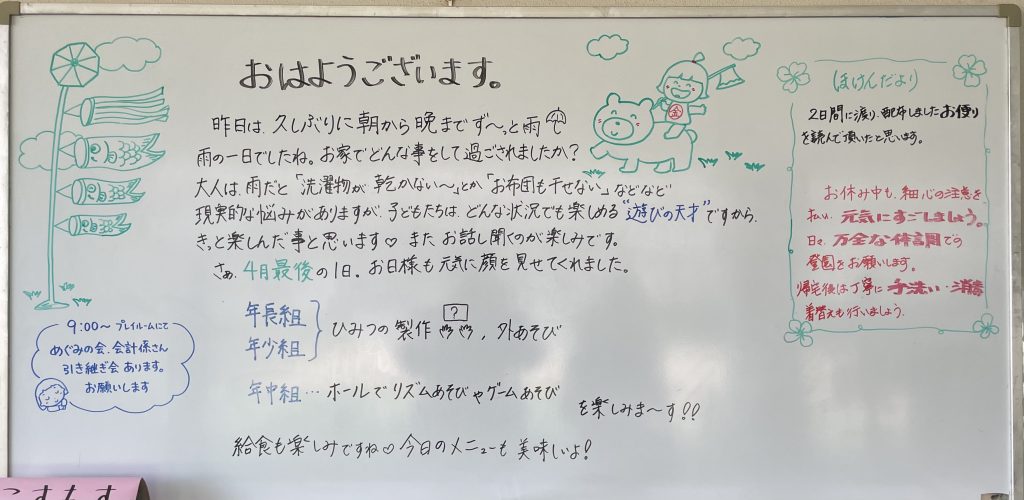 おはようございます。
昨日は、久しぶりに朝から晩までず〜っと雨
雨の一日でしたね。お家でどんな事をして過ごされましたか？
大人は、雨だと「洗濯物が乾かない〜」とか「お布団も干せない」などなど
現実的な悩みがありますが、子どもたちは、どんな状況でも楽しめる"遊びの天才"ですから、
きっと楽しんだ事と思います♡ また、お話し聞くのが楽しみです。
さぁ、4月最後の1日。お日様も元気に顔を見せてくれました。
年長組
年少組
ひみつの製作 ? , 外あそび
年中組…ホールでリズムあそびやゲームあそび
を楽しみま〜す!!
給食も楽しみですね♡今日のメニューも美味しいよ!
9:00〜 プレイルームにて
めぐみの会、会計係さん
引き継ぎ会あります。
お願いします
金
ほけんだより
2日間に渡り、配布しましたお便り
を読んで頂いたと思います。
お休み中も、細心の注意を
払い、元気にすごしましょう。
日々、万全な体調での
登園をお願いします。
帰宅後は丁寧に手洗い・消毒
着替えも行いましょう。
こすもす